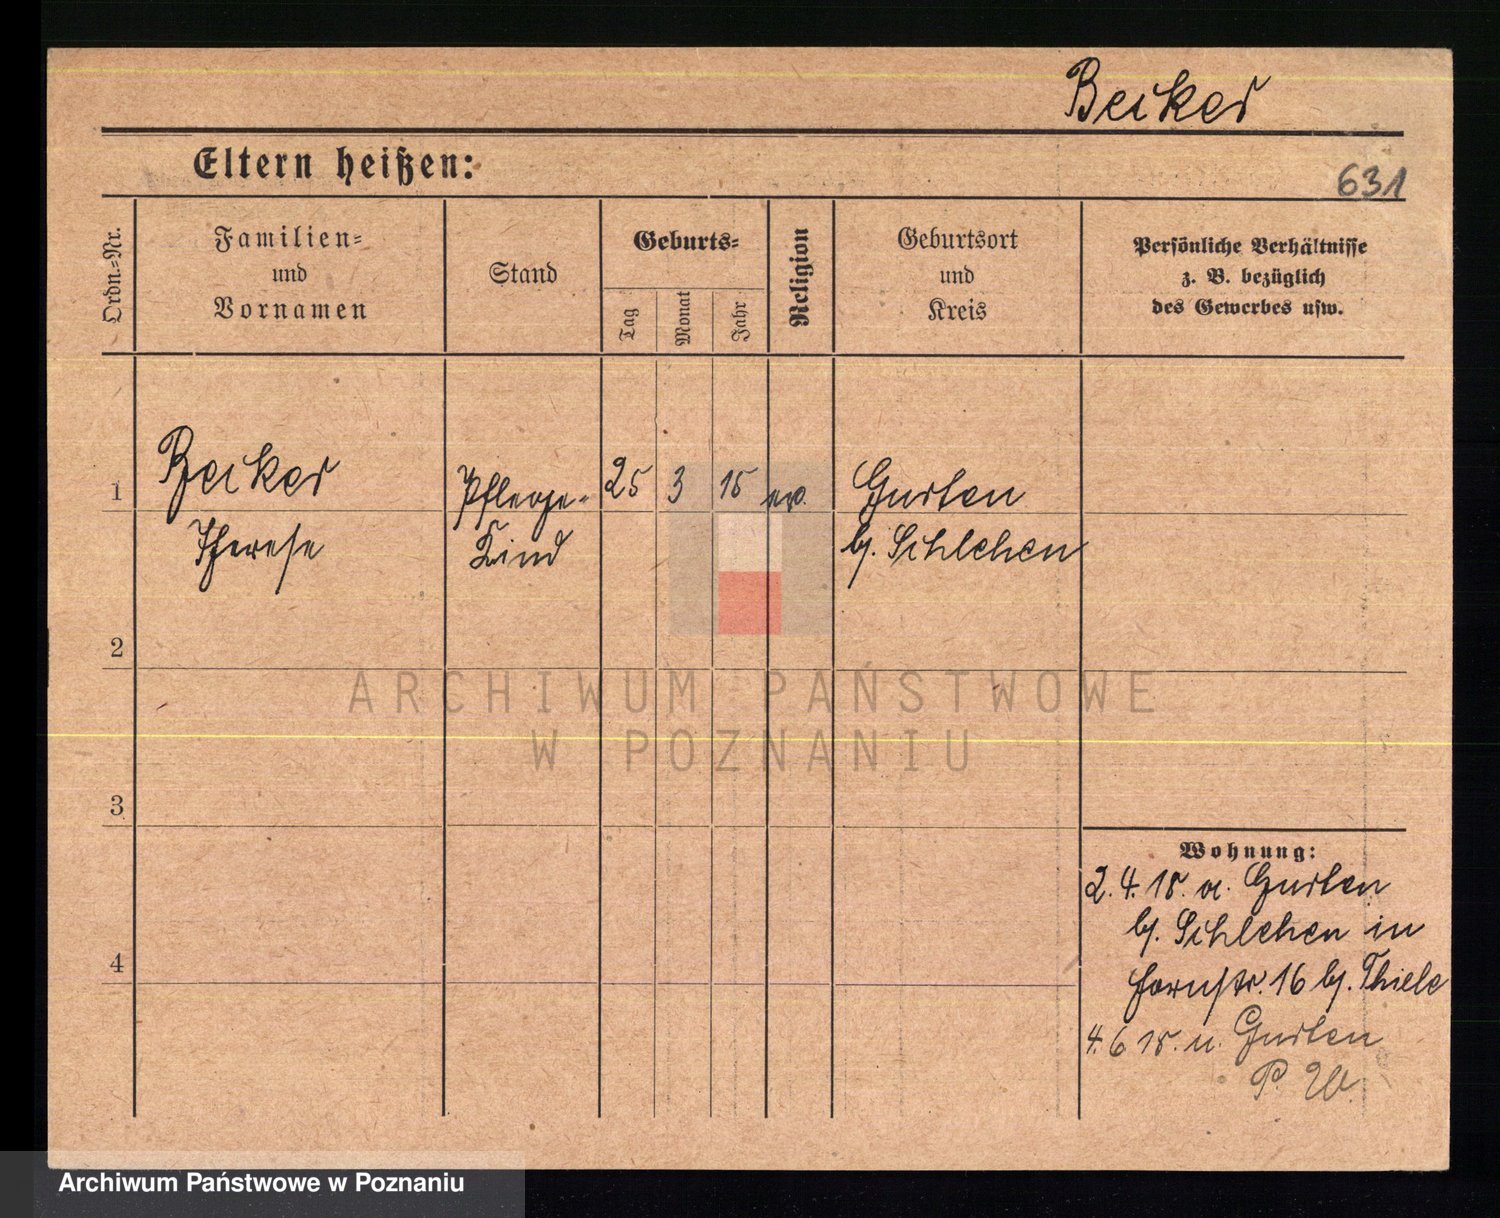 Becker
Eltern heißen:
631
Ordn.-Nr.
Familien-
und
Vornamen
Stand
Geburts-
Tag
Monat
Jahr
Religion
Geburtsort
und
Kreis
Persönliche Verhältnisse
z. B. bezüglich
des Gewerbes usw.
1
Becker
Therese
Pflege-
Kind
25
3
15
ev.
Gurten
b/. Schlehen
2
ARCHIWUM PAŃSTWOWE
W POZNANIU
3
Wohnung:
2. 4. 15. a. Gurten
b/. Schlehen in
str. 16 b/. Thiele
4
4. 6 15. n. Gurten
P. W.
Archiwum Państwowe w Poznaniu